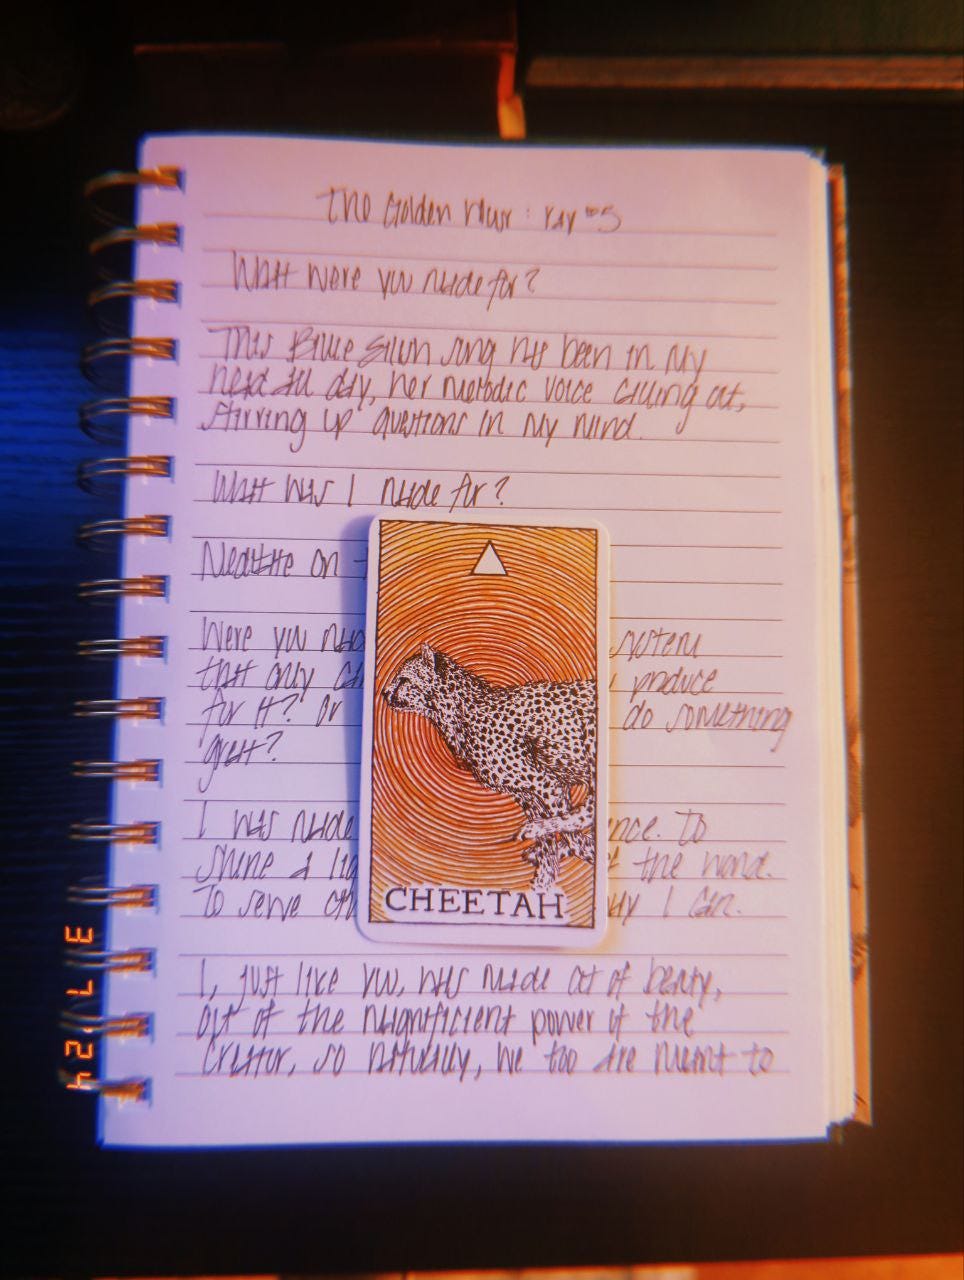 The Golden Hour: Ray #5
What were you made for?
This Billie Eilish song has been in my
head all day, her melodic voice calling out,
stirring up questions in my mind.
What was I made for?
Meditate on
Were you system
that only produce
for it? Or do something
great?
I was made ence. To
shine a lig the world.
To serve oth ay I can.
CHEETAH
I, just like you, was made out of beauty,
out of the magnificient power of the
Creator, so naturally, we too are meant to
3 7 '24